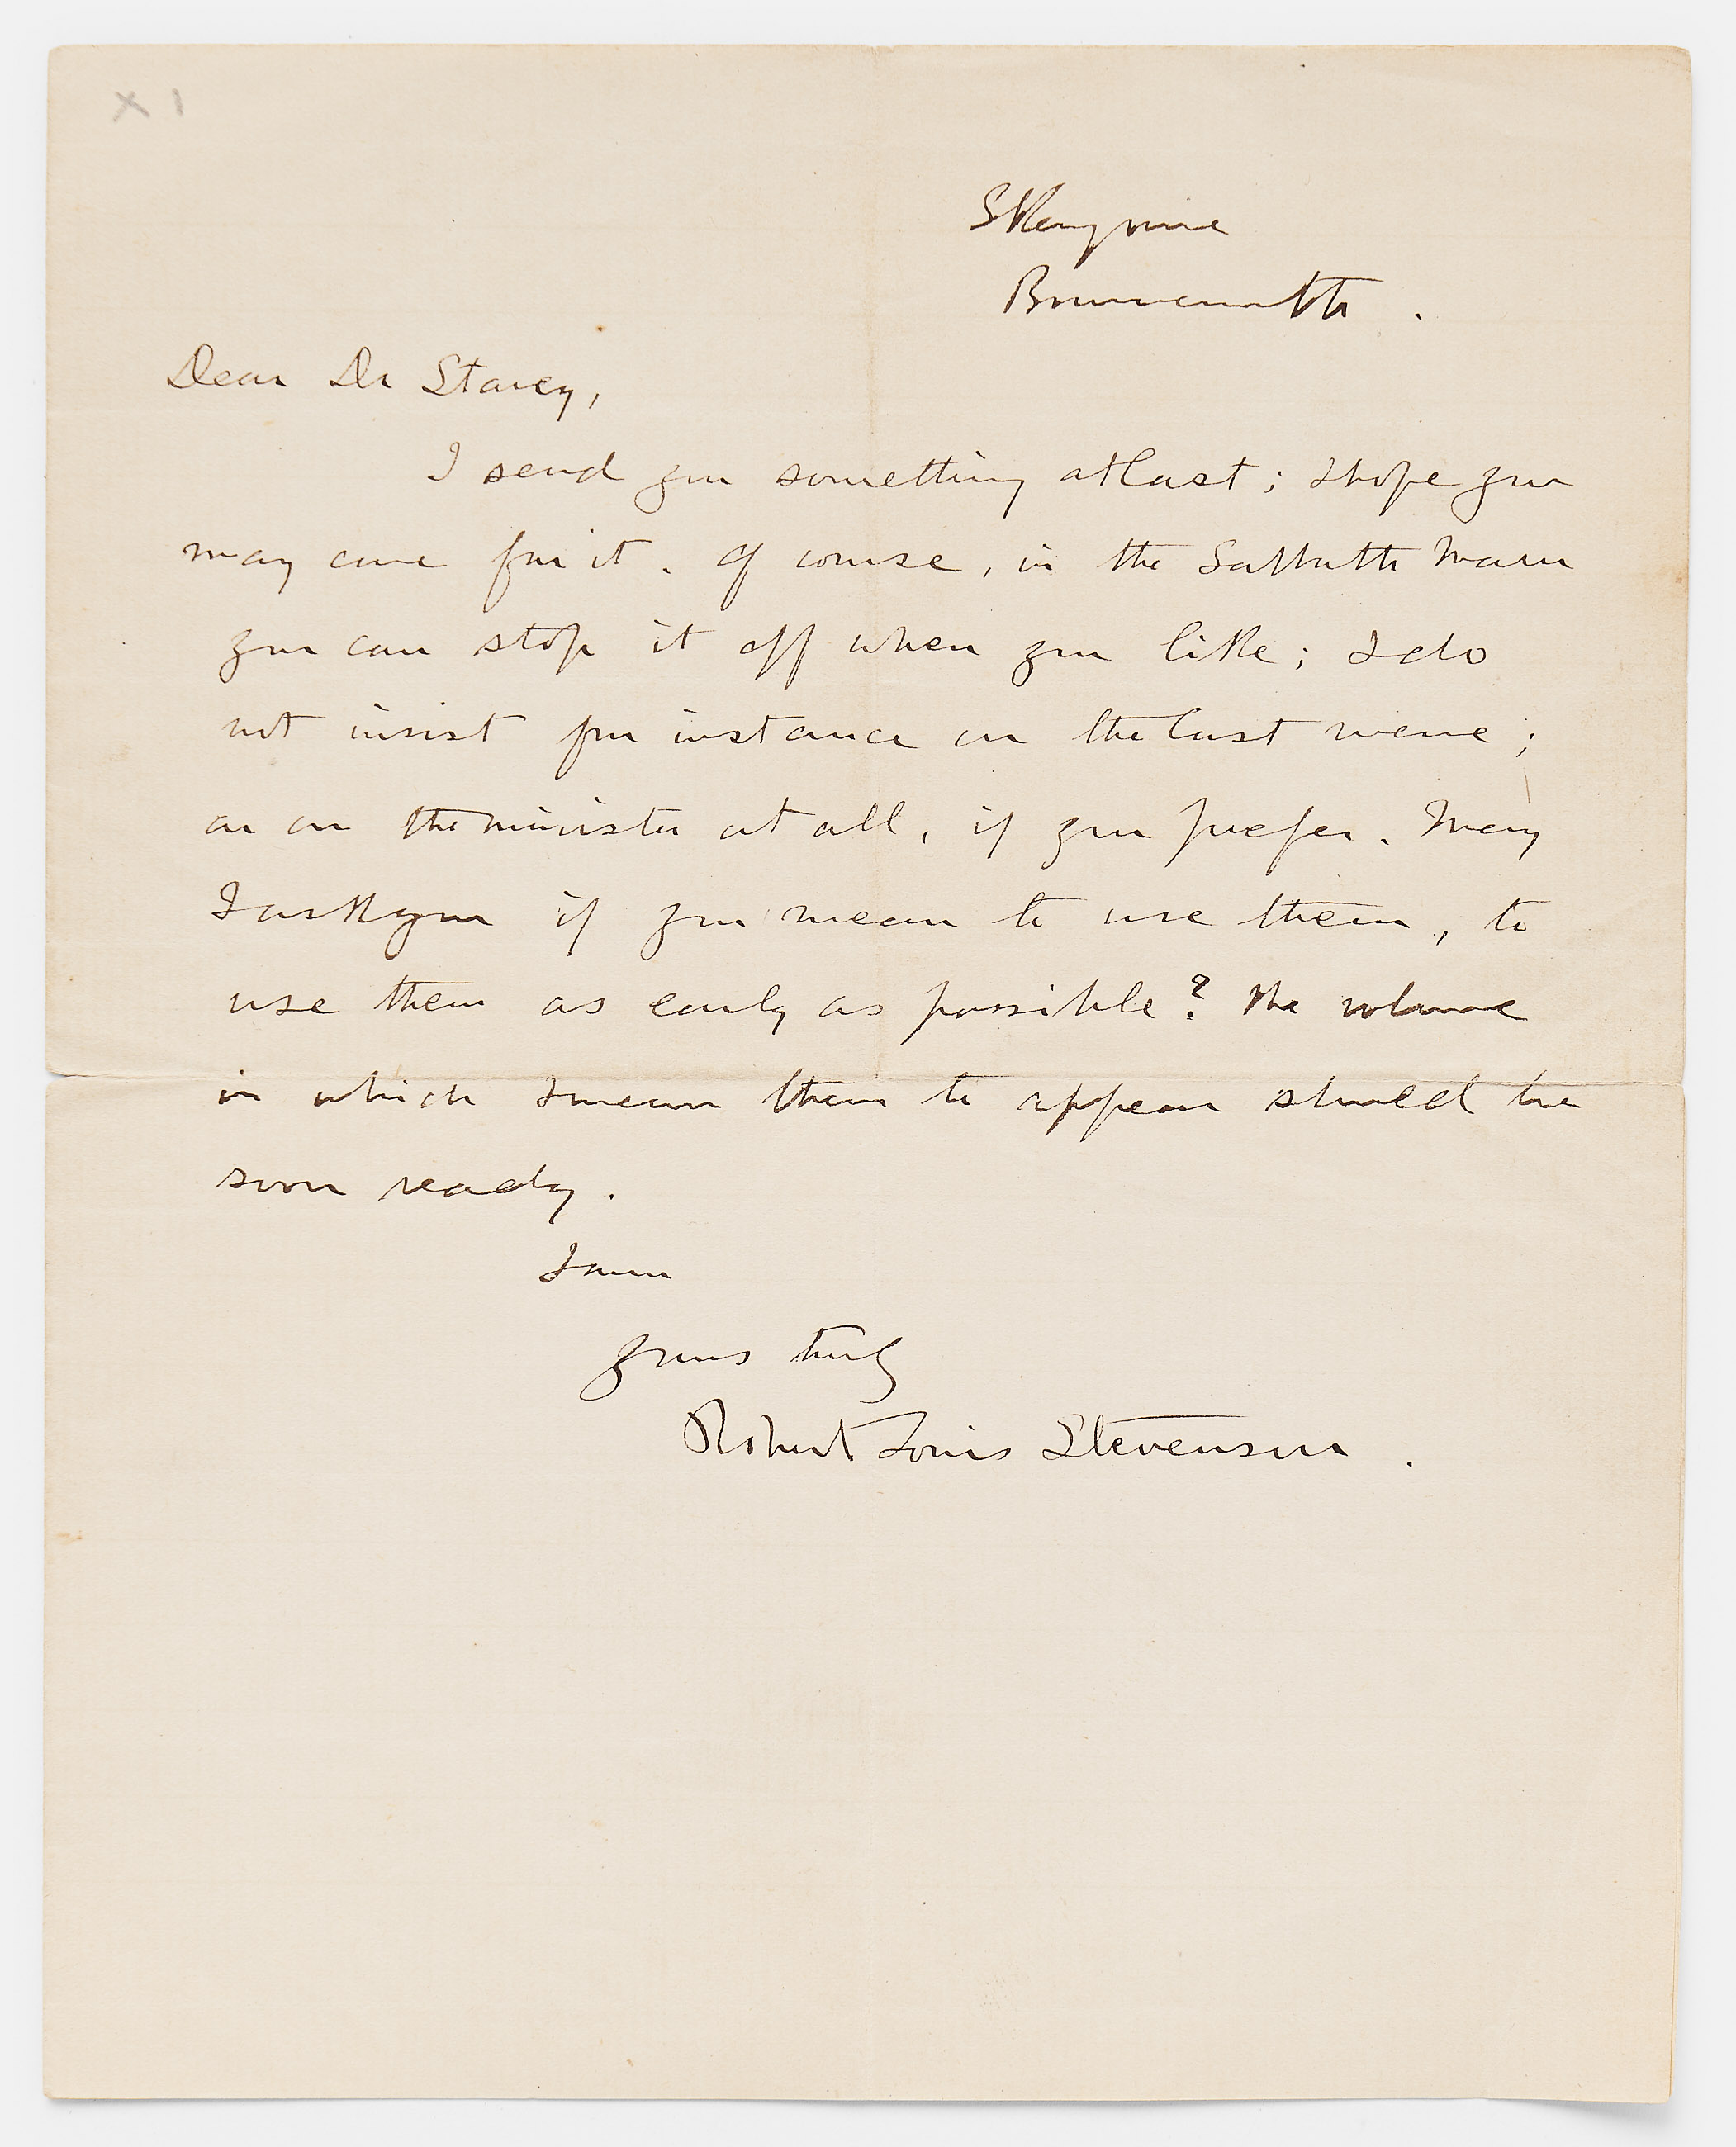 X 1
Skerryvore
Bournemouth.
Dear Dr Starey,
I send you something at last; I hope you
may care for it. Of course, in the Sabbath Morn
you can stop it off when you like; I do
not insist for instance on the last scene;
or on the minister at all, if you prefer. May
I ask you if you mean to use them, to
use them as early as possible? The volume
in which I mean them to appear should be
soon ready.
I am
yours truly
Robert Louis Stevenson.